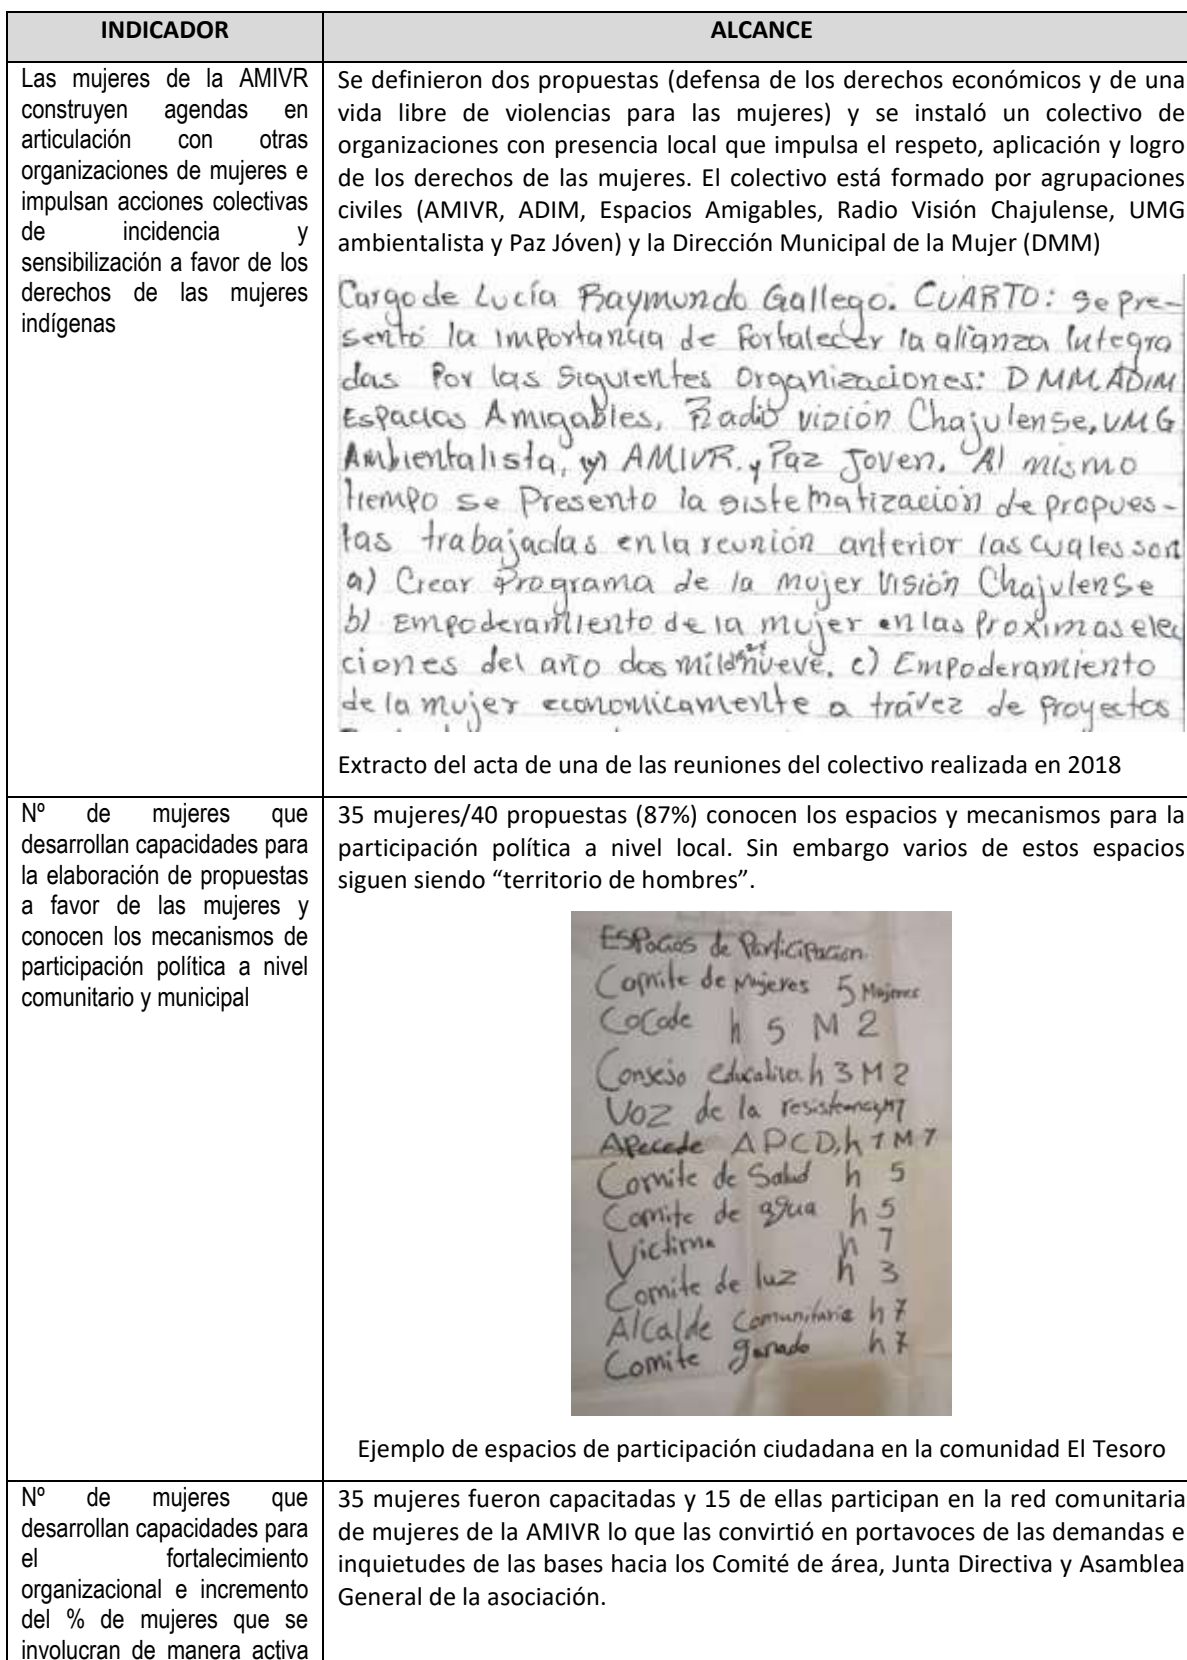 INDICADOR
ALCANCE
Las mujeres de la AMIVR
construyen agendas en
articulación con otras
organizaciones de mujeres e
impulsan acciones colectivas
de incidencia y
sensibilización a favor de los
derechos de las mujeres
indígenas
Se definieron dos propuestas (defensa de los derechos económicos y de una
vida libre de violencias para las mujeres) y se instaló un colectivo de
organizaciones con presencia local que impulsa el respeto, aplicación y logro
de los derechos de las mujeres. El colectivo está formado por agrupaciones
civiles (AMIVR, ADIM, Espacios Amigables, Radio Visión Chajulense, UMG
ambientalista y Paz Jóven) y la Dirección Municipal de la Mujer (DMM)
Cargo de Lucía Raymundo Gallego. CUARTO: se pre-
sentó la importancia de Fortalecer la alianza Integra
das Por las Siguientes Organizaciones: DMM, ADIM
Espacios Amigables, Radio vizión Chajulense, UMG
Ambientalista, AMIVR. y Paz Joven. Al mismo
tiempo se Presento la sistematización de propues-
tas trabajadas en la reunión anterior las cuales son
a) Crear Programa de la mujer Visión Chajulense
b) Empoderamiento de la mujer en las Proximas elec
ciones del año dos mil nueve. c) Empoderamiento
de la mujer economicamente a trávez de Proyectos
Extracto del acta de una de las reuniones del colectivo realizada en 2018
Nº de mujeres que
desarrollan capacidades para
la elaboración de propuestas
a favor de las mujeres y
conocen los mecanismos de
participación política a nivel
comunitario y municipal
35 mujeres/40 propuestas (87%) conocen los espacios y mecanismos para la
participación política a nivel local. Sin embargo varios de estos espacios
siguen siendo “territorio de hombres”.
ESPacios de Participacion
Comite de Mujeres 5 Mujeres
CoCode h 5 M 2
Consejo educativo. h 3 M 2
Voz de la resistencia M7
APecede APCD, h 7 M 7
Comite de Salud h 5
Comite de agua h 5
Victima h 7
Comite de luz h 3
Alcalde Comunitaria h 7
Comite ganado h 7
Ejemplo de espacios de participación ciudadana en la comunidad El Tesoro
Nº de mujeres que
desarrollan capacidades para
el fortalecimiento
organizacional e incremento
del % de mujeres que se
involucran de manera activa
35 mujeres fueron capacitadas y 15 de ellas participan en la red comunitaria
de mujeres de la AMIVR lo que las convirtió en portavoces de las demandas e
inquietudes de las bases hacia los Comité de área, Junta Directiva y Asamblea
General de la asociación.